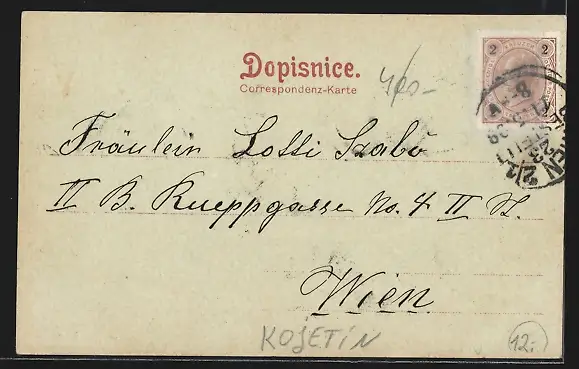 Dopisnice.
Correspondenz-Karte
2 2
WIEN 2/1
Fräulein Lotti Szabò
II B. Rueppgasse No. 4 II St.
Wien
KOJETÍN
12.-